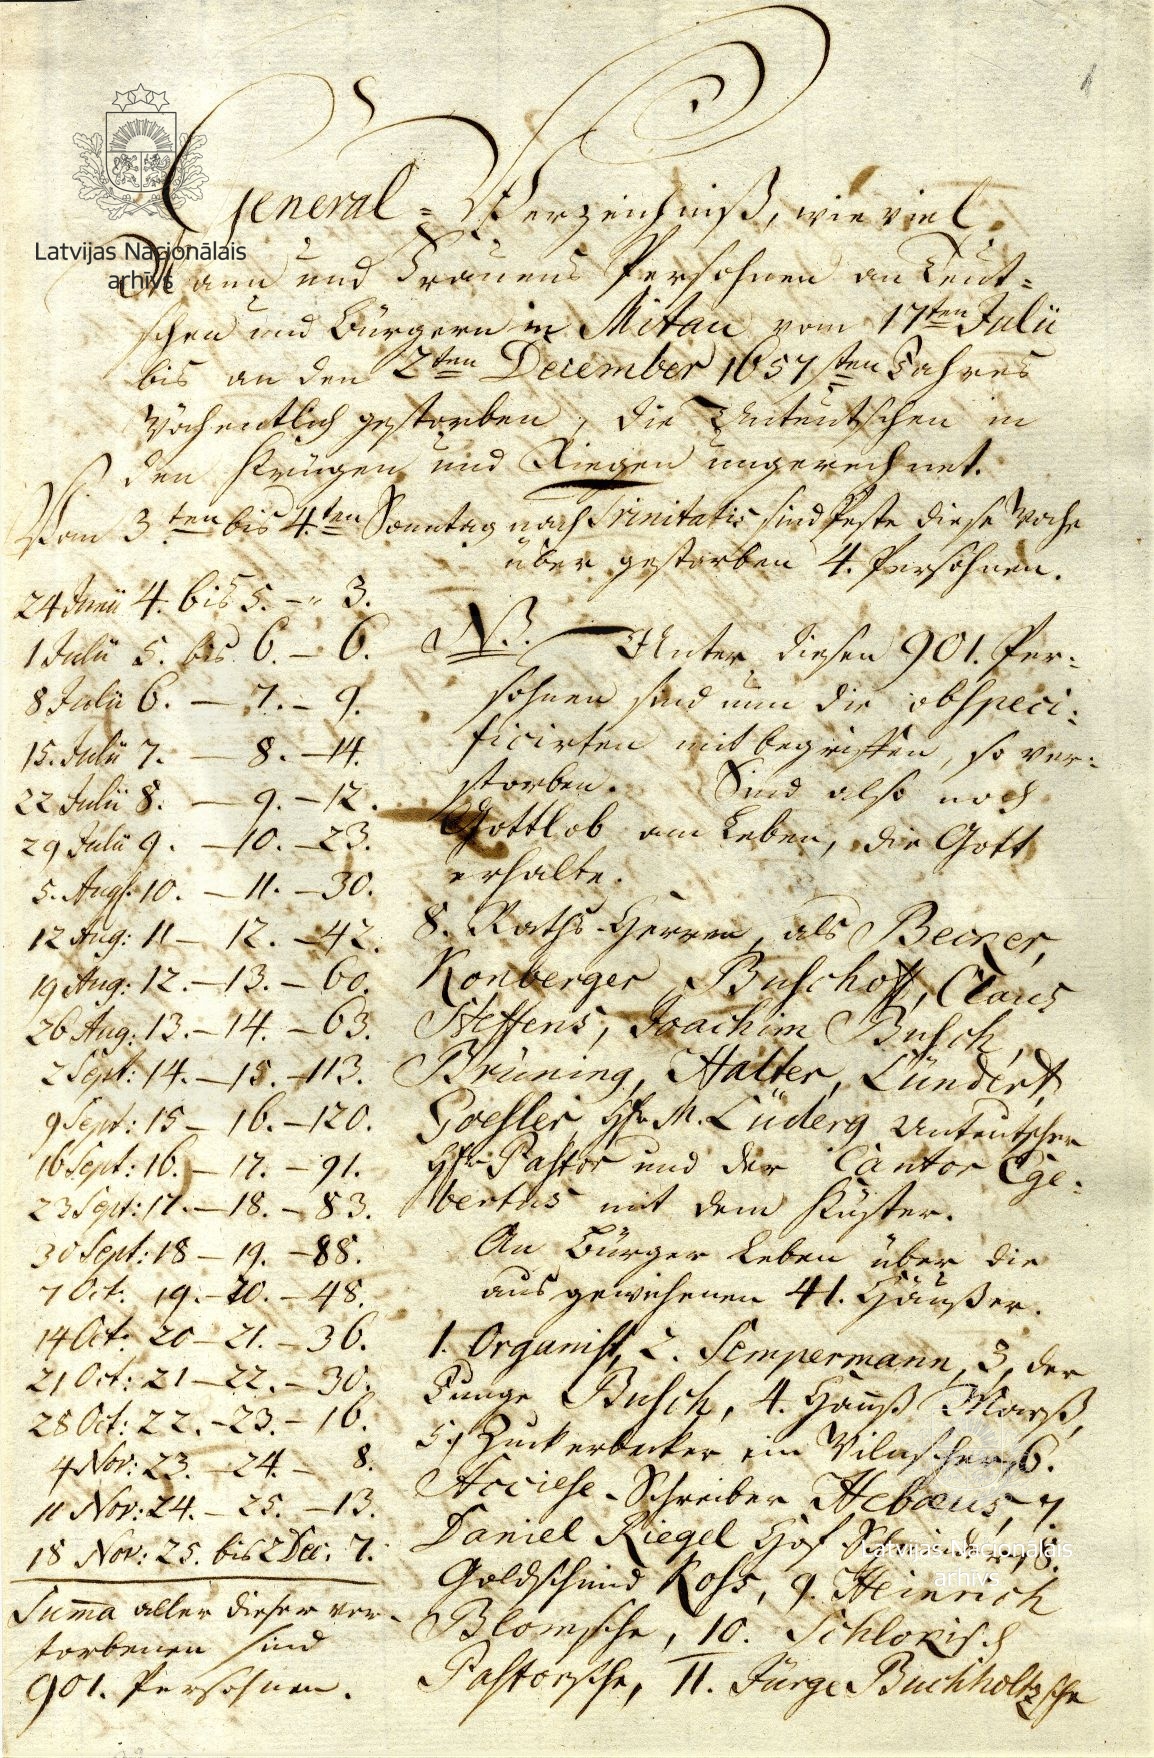 1
Latvijas Nacionālais
arhīvs
General-Verzeichniß, wie viel
Mann und Frauens Persohnen an Teut-
schen und Bürgern in Mitau vom 17ten Julii
bis an den 2ten December 1657sten Jahres
Wöchentlich gestorben, die Unteutschen in
den Krügen und Riegen ungerechnet.
Vom 3ten bis 4ten Sonntag nach Trinitatis sind Peste diese Woche
über gestorben 4. Persohnen.
24 Junii 4. bis 5. -" 3.
1 Julii 5. bis 6. - 6.
8 Julii 6. - 7. - 9.
15. Julii 7. - 8. - 14.
22 Julii 8. - 9. - 12.
29 Julii 9. - 10. - 23.
5. Aug. 10. - 11. - 30.
12 Aug: 11 - 12. - 42.
19 Aug: 12. - 13. - 60.
26 Aug: 13. - 14. - 63.
2 Sept: 14. - 15. - 113.
9 Sept: 15 - 16. - 120.
16 Sept: 16. - 17. - 91.
23 Sept: 17. - 18. - 83.
30 Sept: 18 - 19. - 88.
7 Oct. 19. - 20. - 48.
14 Oct: 20 - 21. - 36.
21 Oct: 21 - 22. - 30.
28 Oct: 22. - 23. - 16.
4 Nov: 23. - 24. - 8.
11 Nov: 24. - 25. - 13.
18 Nov: 25. bis 2 Dec. 7.
Summa aller dieser ver-
storbenen sind
901. Persohnen.
NB. Unter diesen 901. Per-
sohnen sind nun die obspeci-
ficirten mit begriffen, so ver-
storben. Sind also noch
Gottlob am Leben, die Gott
erhalte.
8. Raths-Herren, als Becker,
Konberger, Buschoff, Claus
Steffens, Joachim Busch,
Brüning, Halter, Lündert,
Goesler, Hr M. Lüderg Unteutscher
Hr Pastor und der Cantor Ege-
bertus mit dem Küster.
An Bürger Leben über die
aus gewichenen 41. Häußer.
1. Organist, 2. Sempermann, 3, der
Junge Busch, 4. Hanß Marß,
5, Zuckerbecker ein 6.
Acciese-Schreiber Hebæus, 7.
Daniel Riegel Hof 8.
Goldschmid Ross, 9. Heinrich
Blomsche, 10. Schlorisch
Pastorsche, 11. Jürge Buchholtzsche
Latvijas Nacionālais
arhīvs